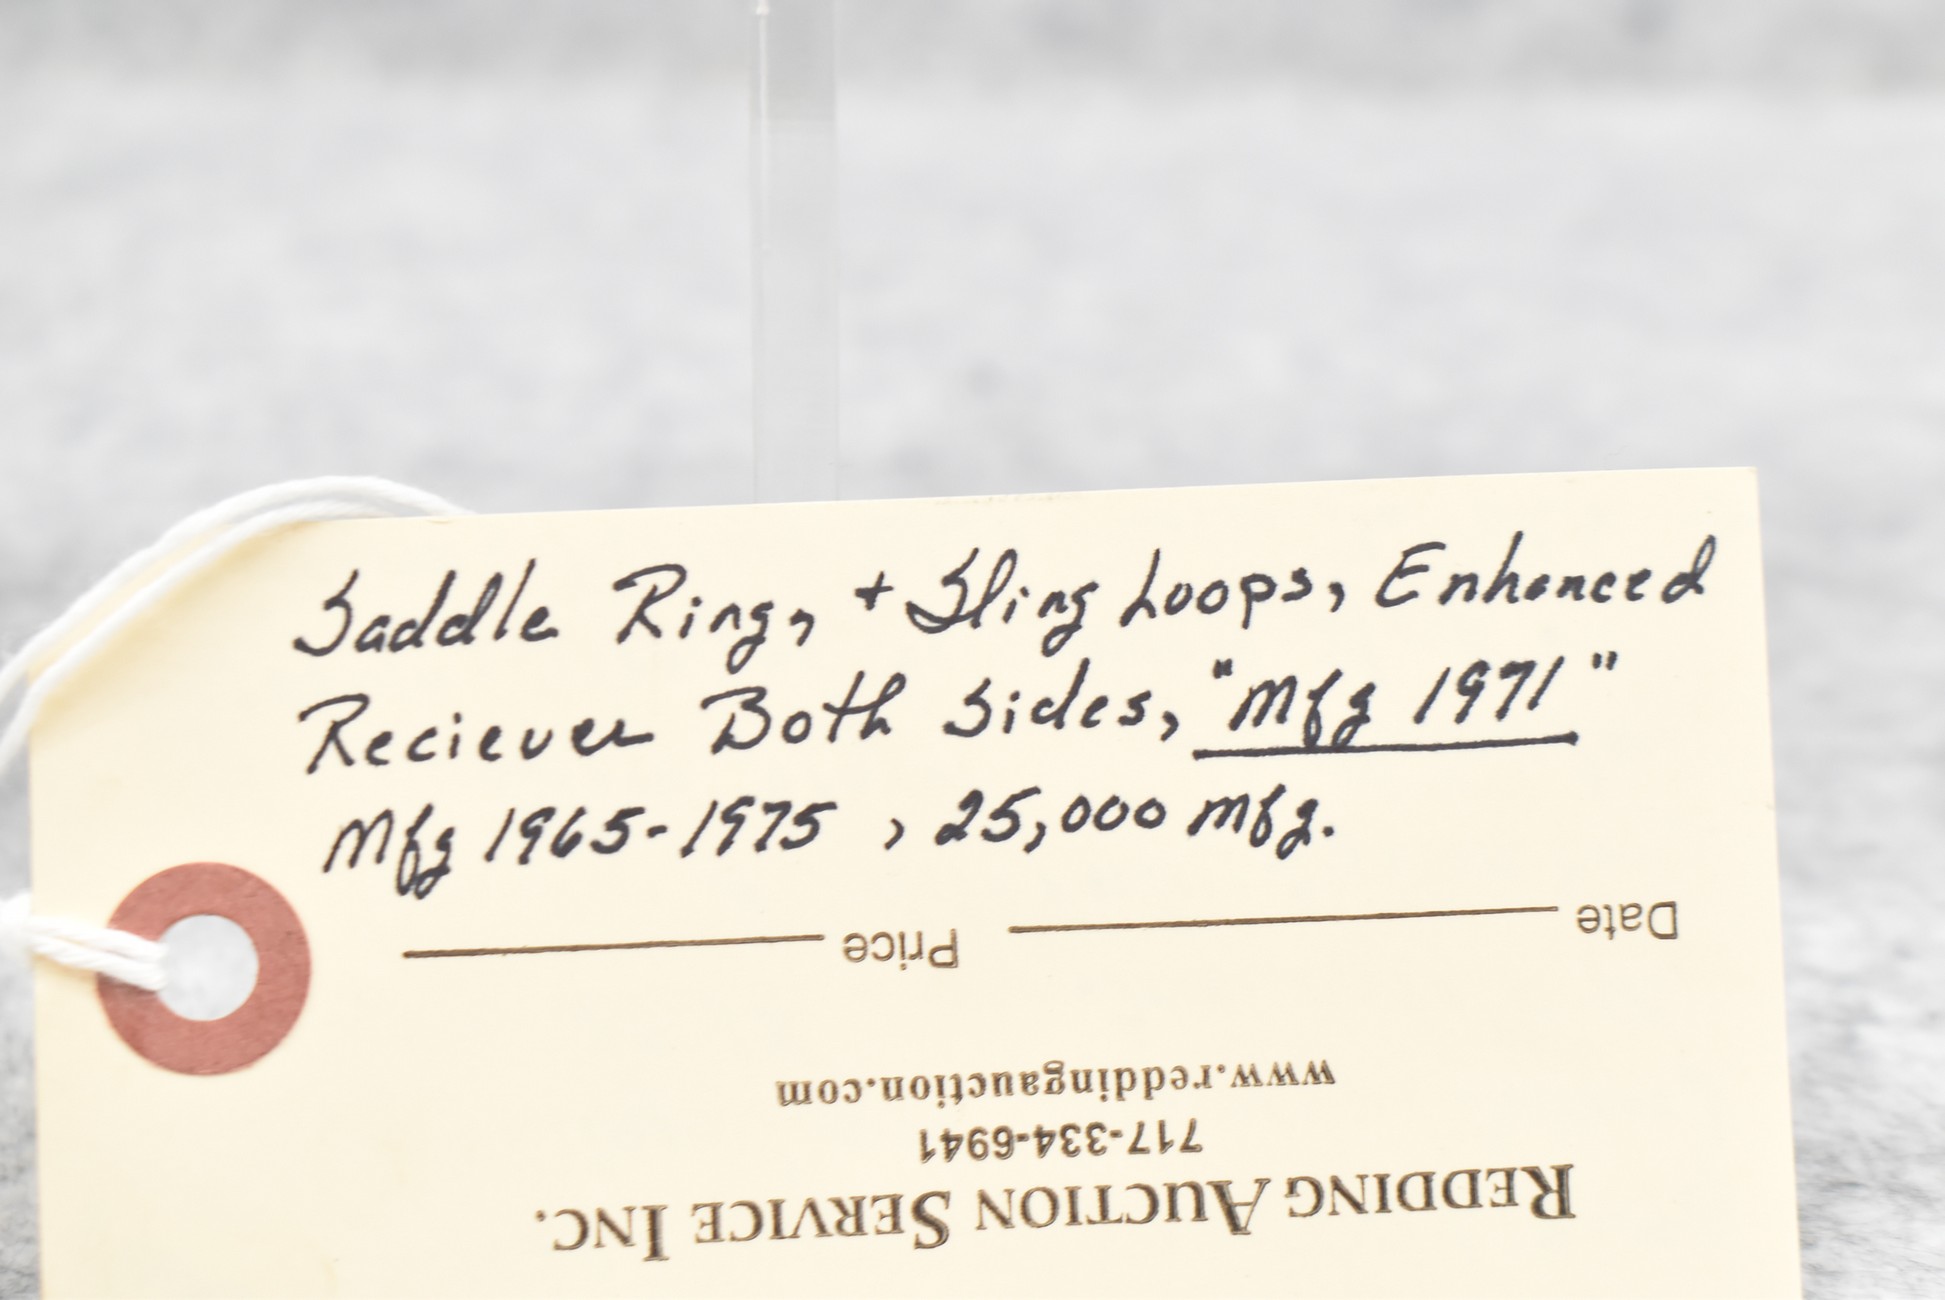 Saddle Ring, + Sling Loops, Enhanced
Reciever Both Sides, "Mfg 1971"
Mfg 1965-1975 , 25,000 mfg.
REDDING AUCTION SERVICE INC.
717-334-6941
www.reddingauction.com
Date Price